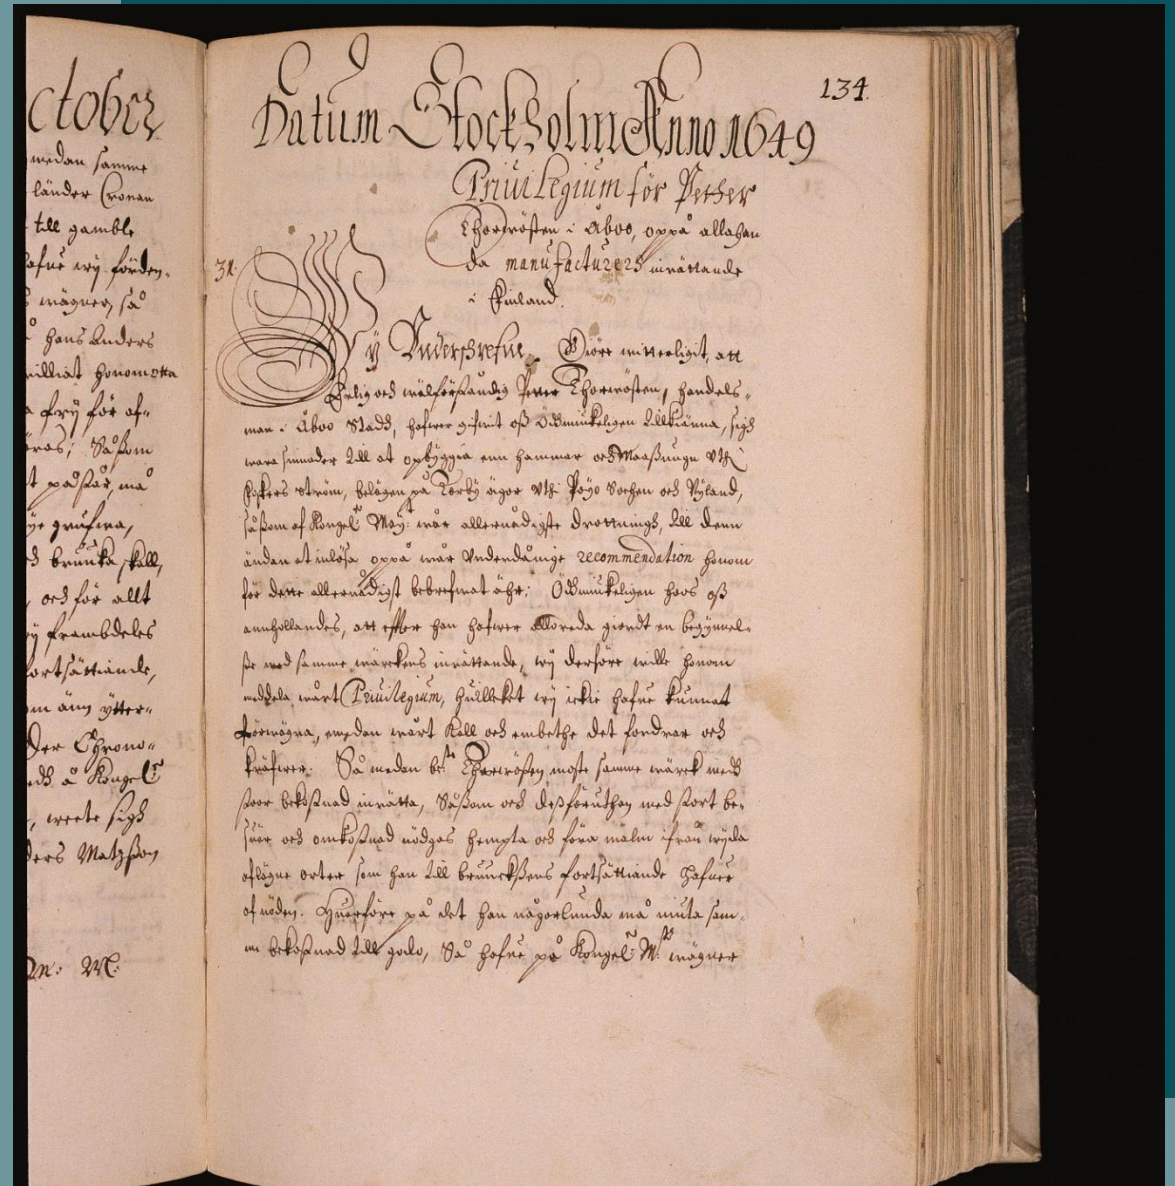 ctober
medan samme
länder Cronan
till gamble
hafue wy förden-
wägner, så
hans Anders
williat honom
fry för af-
Såssom
t påstår, må
grufwa,
bruuka skall,
och för allt
wy frambdeles
fortsättiande,
om än ytter-
der Chrono-
å Kongel:
, weete sigh
ders Matzson
134.
Datum Stockholm Anno 1649
Priuilegium för Pether
Thorwösten i Åboo, oppå allahan
da manufacturers inrättande
i Finland.
31.
Wy Underschrefne Giöre witterligit, att
Erlig och wälförståndig Peter Thorwösten, handels-
man i Åboo Stadh, hafwer gifwit oss Ödmiukeligen tillkiänna, sigh
wara sinnader till at opbyggia enn hammar och Maassungn vthi
Fiskers ström, belägen på Torby ägor vthi Poyo Sochen och Nyland,
såssom af Kongel: May:t wår allernådigste drottningh, till denn
ändan at inlösa oppå wår vnderdånige recommendation honom
för dette allernådigst bebrefwat ähr; Ödmiukeligen hoos oss
annhollandes, att effter han hafwer alloreda giordt en begynnel-
se med samme wärckens inrättande, wy derföre wille honom
meddela wårt Priuilegium, huilleket wy ickie hafue kunnat
förwägra, medan wårt Kall och embethe det fordrar och
kräfwer. Så medan be:te Thorwösten moste samme wärck medh
stoor bekostnad inrätta, Såssom och dessföruthan med stort be-
suär och omkostnad nödgas hempta och föra malm ifrån wyda
aflägne orter som han till bruuckssens fortsättiande hafuer
af nöden. Huarföre på det han någorlunda må niuta sam-
me bekostnad till godo, Så hafue på Kongel: M:tz wägner